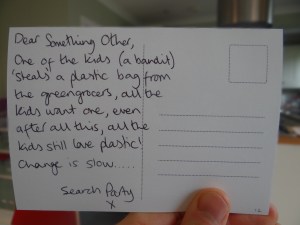 Dear Something Other,
One of the kids (a bandit)
'steals' a plastic bag from
the greengrocers, all the
kids want one, even
after all this, all the
kids still love plastic!
Change is slow.....
Search Party
x